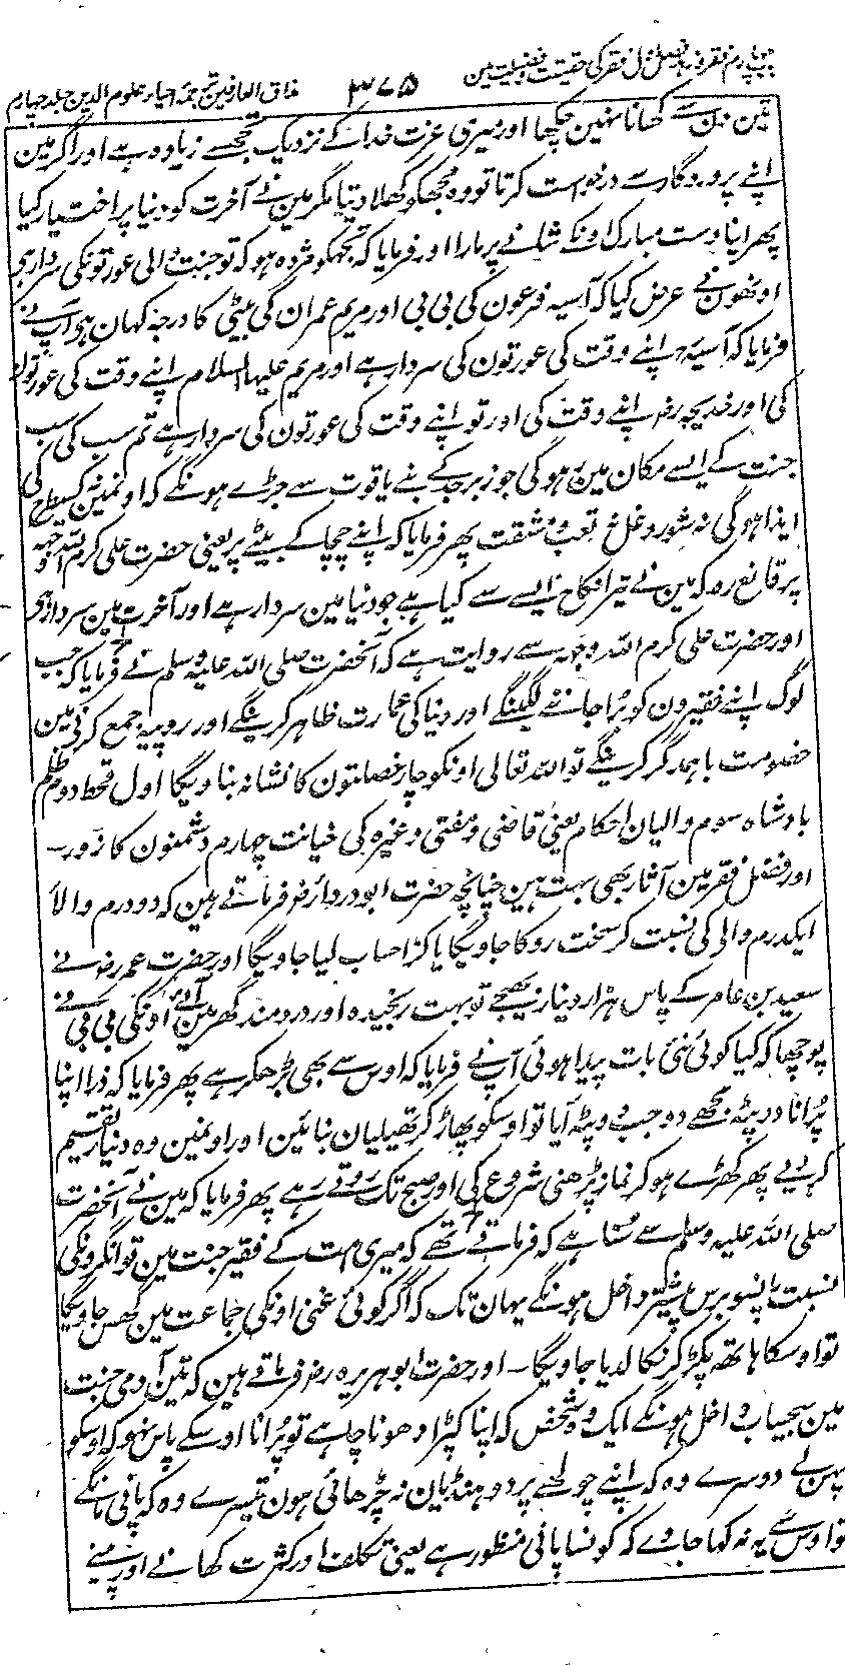 باب چہارم فقر و زہد فصل اول فقر کی حقیقت و فضیلت مین ۳۷۵ مذاق العارفین ترجمۂ احیاء علوم الدین جلد چہارم
تین دن سے کھانا نہین چکھا اور میری عزت خدا کے نزدیک تجھسے زیادہ ہے اور اگر مین
اپنے پروردگار سے درخواست کرتا تو وہ مجھکو کھلا دیتا مگر مین نے آخرت کو دنیا پر اختیار کیا
پھر اپنا دست مبارک اونکے شانے پر مارا اور فرمایا کہ تجھکو مژدہ ہو کہ تو جنت والی عورتونکی سردار ہی
اونھون نے عرض کیا کہ آسیہ فرعون کی بی بی اور مریم عمران کی بیٹی کا درجہ کہان ہی آپ نے
فرمایا کہ آسیہ اپنے وقت کی عورتون کی سردار ہے اور مریم علیہا السلام اپنے وقت کی عورتون
کی اور خدیجہ رضہ اپنے وقت کی اور تو اپنے وقت کی عورتون کی سردار ہے تم سب کی سب
جنت کے ایسے مکان مین ہو گی جو زبرجد کے بنے یاقوت سے جڑے ہونگے کہ اونمین نہ کسیطرح کی
ایذا ہو گی نہ شور و غل نہ تعب و مشقت پھر فرمایا کہ اپنے چچا کے بیٹے پر یعنی حضرت علی کرم اللہ وجہہ
پر قانع رہ کہ مین نے تیرا نکاح ایسے سے کیا ہے جو دنیا مین سردار ہے اور آخرت مین سردار ہی
اور حضرت علی کرم اللہ وجہہ سے روایت ہے کہ آنحضرت صلی اللہ علیہ وسلم نے فرمایا کہ جب
لوگ اپنے فقیرون کو برا جاننے لگینگے اور دنیا کی عمارت ظاہر کرینگے اور روپیہ جمع کرنے مین
خصومت باہمدگر کرینگے تو اللہ تعالی اونکو چار خصلتون کا نشانہ بناویگا اول قحط دوم ظلم
بادشاہ سوم والیان احکام یعنی قاضی و مفتی وغیرہ کی خیانت چہارم دشمنون کا زور۔
اور فضل فقر مین آثار بھی بہت ہین چنانچہ حضرت ابو دردا رضہ فرماتے ہین کہ دو درم والا
ایکدرم والی کی نسبت کر سخت روکا جاویگا یا کڑا حساب لیا جاویگا اور حضرت عمر رضہ نے
سعید بن عامر کے پاس ہزار دینار بھیجے تو بہت رنجیدہ اور دردمند گھر مین آئے اونکی بی بی نے
پوچھا کہ کیا کوئی نئی بات پیدا ہوئی آپ نے فرمایا کہ اوس سے بھی بڑھکر ہے پھر فرمایا کہ ذرا اپنا
پرانا دوپٹہ مجھے دو جب دوپٹہ آیا تو اوسکو پھاڑ کر تھیلیان بنائین اور اونمین وہ دینار تقسیم
کر دیے پھر کھڑے ہو کر نماز پڑھنی شروع کی اور صبح تک روتے رہے پھر فرمایا کہ مین نے آنحضرت
صلی اللہ علیہ وسلم سے سنا ہے کہ فرماتے تھے کہ میری امت کے فقیر جنت مین توانگرونکی
نسبت پانسو برس پیشتر داخل ہونگے یہان تک کہ اگر کوئی غنی اونکی جماعت مین گھس جاویگا
تو اوسکا ہاتھ پکڑ کر نکالدیا جاویگا۔ اور حضرت ابو ہریرہ رضہ فرماتے ہین کہ تین آدمی جنت
مین بیحساب داخل ہونگے ایک وہ شخص کہ اپنا کپڑا دھونا چاہے تو پرانا اوسکے پاس نہو کہ اوسکو
پہن لے دوسرے وہ کہ اپنے چولھے پر دو ہنڈیان نہ چڑھائی ہون تیسرے وہ کہ پانی مانگے
تو اوس سے یہ نہ کہا جاوے کہ کونسا پانی منظور ہے یعنی تکلف اور کثرت کھانے اور پینے